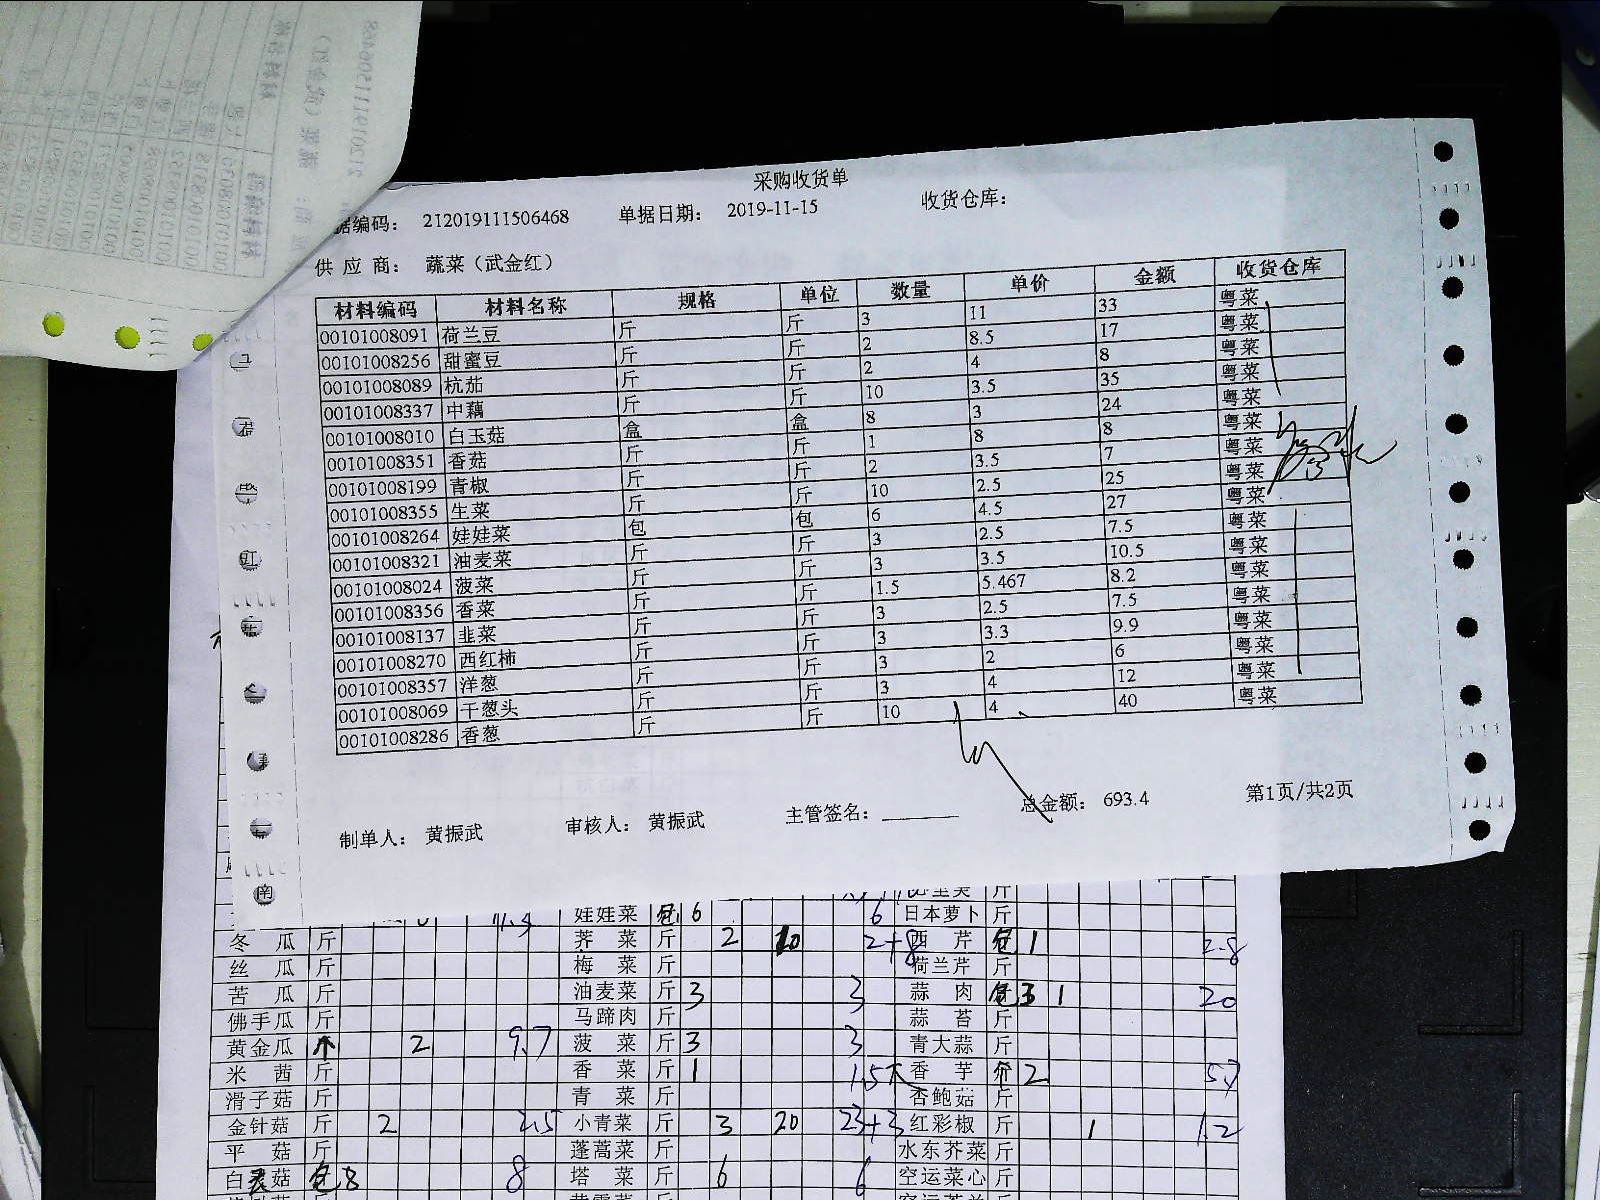 采购收货单
据编码： 212019111506468 单据日期： 2019-11-15 收货仓库：
供 应 商： 蔬菜（武金红）
材料编码 材料名称 规格 单位 数量 单价 金额 收货仓库
00101008091 荷兰豆 斤 斤 3 11 33 粤菜
00101008256 甜蜜豆 斤 斤 2 8.5 17 粤菜
00101008089 杭茄 斤 斤 2 4 8 粤菜
00101008337 中藕 斤 斤 10 3.5 35 粤菜
00101008010 白玉菇 盒 盒 8 3 24 粤菜
00101008351 香菇 斤 斤 1 8 8 粤菜
00101008199 青椒 斤 斤 2 3.5 7 粤菜
00101008355 生菜 斤 斤 10 2.5 25 粤菜
00101008264 娃娃菜 包 包 6 4.5 27 粤菜
00101008321 油麦菜 斤 斤 3 2.5 7.5 粤菜
00101008024 菠菜 斤 斤 3 3.5 10.5 粤菜
00101008356 香菜 斤 斤 1.5 5.467 8.2 粤菜
00101008137 韭菜 斤 斤 3 2.5 7.5 粤菜
00101008270 西红柿 斤 斤 3 3.3 9.9 粤菜
00101008357 洋葱 斤 斤 3 2 6 粤菜
00101008069 干葱头 斤 斤 3 4 12 粤菜
00101008286 香葱 斤 斤 10 4 40 粤菜
制单人： 黄振武 审核人： 黄振武 主管签名： 总金额： 693.4 第1页/共2页
娃娃菜 包 6 6 日本萝卜 斤
冬 瓜 斤 荠 菜 斤 2 10 2+8 西 芹 包 1 2.8
丝 瓜 斤 梅 菜 斤 荷兰芹 斤
苦 瓜 斤 油麦菜 斤 3 3 蒜 肉 包 3 1 20
佛手瓜 斤 马蹄肉 斤 蒜 苔 斤
黄金瓜 个 2 9.7 菠 菜 斤 3 3 青大蒜 斤
米 茜 斤 香 菜 斤 1 1.5 香 芋 个 2 5.7
滑子菇 斤 青 菜 斤 杏鲍菇 斤
金针菇 斤 2 2.5 小青菜 斤 3 20 23+3 红彩椒 斤 1 1.2
平 菇 斤 蓬蒿菜 斤 水东芥菜 斤
白灵菇 包 8 8 塔 菜 斤 6 6 空运菜心 斤